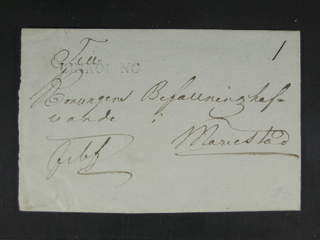 1
Till
Konungens Befallningshaf-
vande i
Mariestad